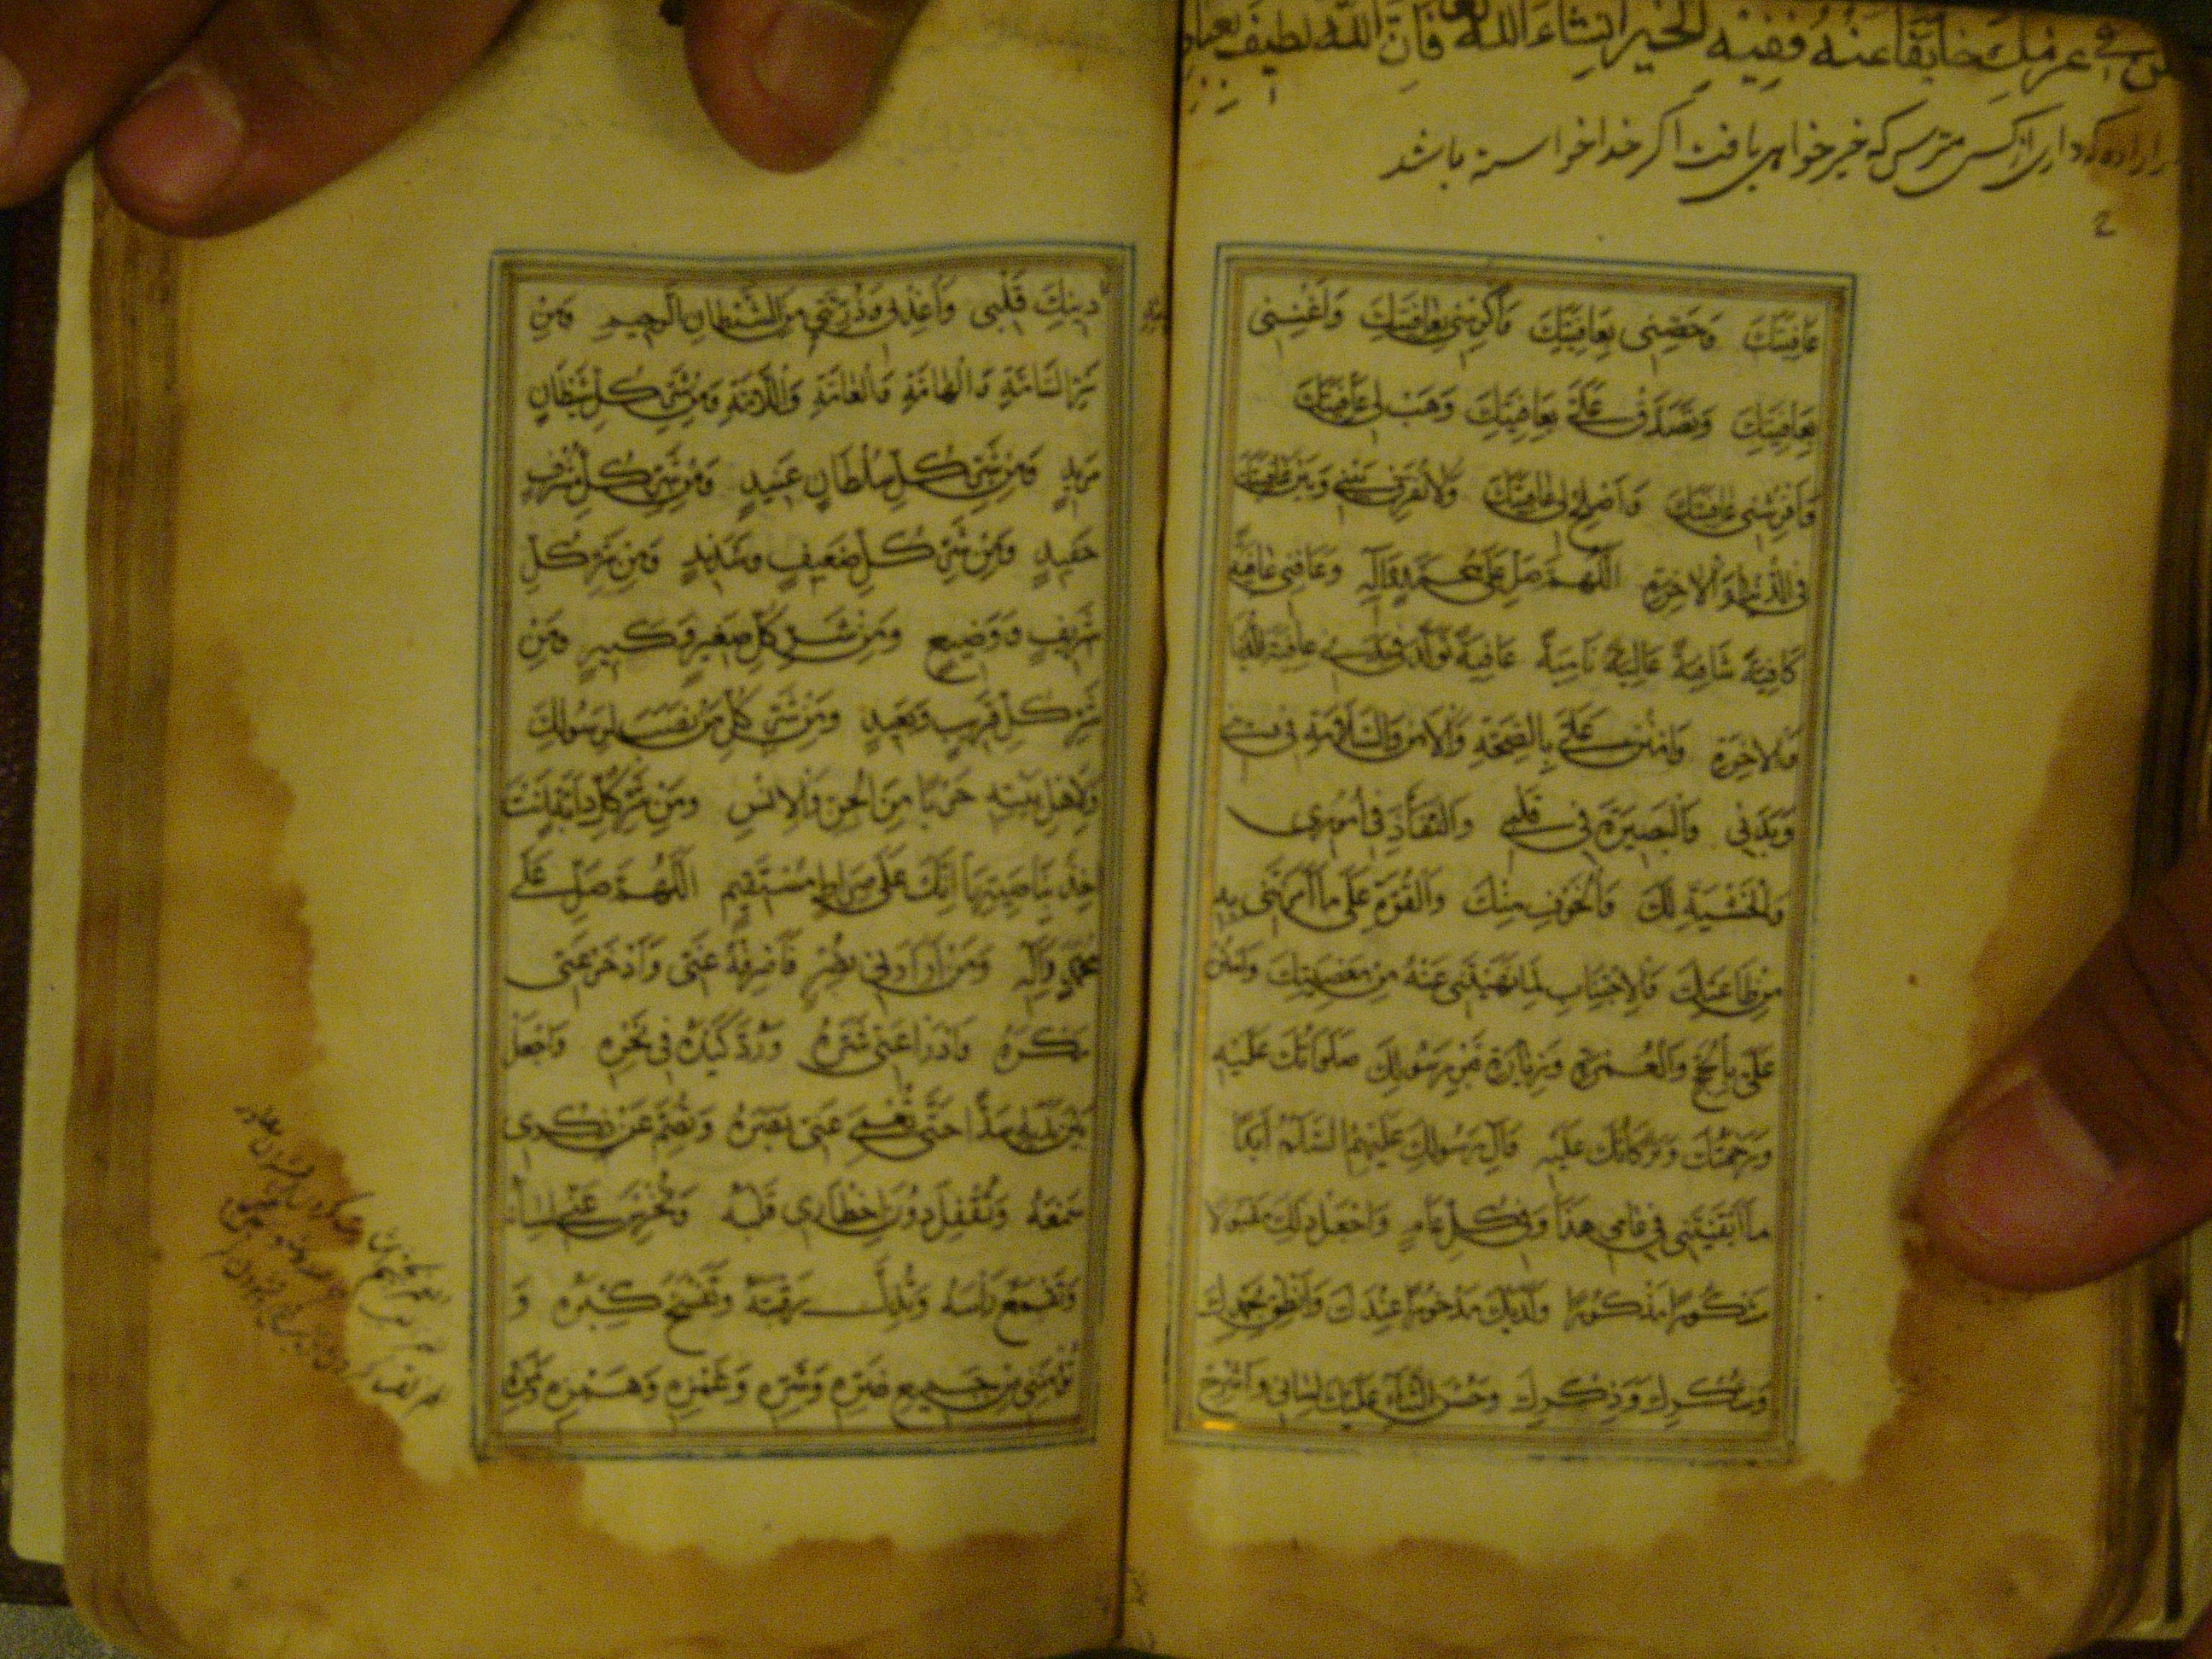 عزمك خايفا عنه ففيه الخير انشاء الله فان الله لطيف
داری از کس مترس که خیر خواهی یافت اگر خدا خواسته باشد
عَافِيَتَكَ وَحَصِّنِي بِعَافِيَتِكَ وَأَكْرِمْنِي بِعَافِيَتِكَ وَأَغْنِنِي
بِعَافِيَتِكَ وَتَصَدَّقْ عَلَيَّ بِعَافِيَتِكَ وَهَبْ لِي عَافِيَتَكَ
وَأَفْرِشْنِي عَافِيَتَكَ وَأَصْلِحْ لِي عَافِيَتَكَ وَلَا تُفَرِّقْ بَيْنِي وَبَيْنَ عَافِيَتِكَ
فِي الدُّنْيَا وَالْآخِرَةِ اللَّهُمَّ صَلِّ عَلَى مُحَمَّدٍ وَآلِهِ وَعَافِنِي عَافِيَةً
كَافِيَةً شَافِيَةً عَالِيَةً نَامِيَةً عَافِيَةً تُوَلِّدُ فِي بَدَنِي عَافِيَةَ الدُّنْيَا
وَالْآخِرَةِ وَامْنُنْ عَلَيَّ بِالصِّحَّةِ وَالْأَمْنِ وَالسَّلَامَةِ فِي دِينِي
وَبَدَنِي وَالْبَصِيرَةِ فِي قَلْبِي وَالنَّفَاذِ فِي أُمُورِي
وَالْخَشْيَةِ لَكَ وَالْخَوْفِ مِنْكَ وَالْقُوَّةِ عَلَى مَا أَمَرْتَنِي بِهِ
مِنْ طَاعَتِكَ وَالِاجْتِنَابِ لِمَا نَهَيْتَنِي عَنْهُ مِنْ مَعْصِيَتِكَ وَامْنُنْ
عَلَيَّ بِالْحَجِّ وَالْعُمْرَةِ وَزِيَارَةِ قَبْرِ رَسُولِكَ صَلَوَاتُكَ عَلَيْهِ
وَرَحْمَتُكَ وَبَرَكَاتُكَ عَلَيْهِ وَآلِ رَسُولِكَ عَلَيْهِمُ السَّلَامُ أَبَدًا
مَا أَبْقَيْتَنِي فِي عَامِي هَذَا وَفِي كُلِّ عَامٍ وَاجْعَلْ ذَلِكَ مَقْبُولًا
مَشْكُورًا مَذْكُورًا وَلَدَيْكَ مَذْخُورًا عِنْدَكَ وَأَنْطِقْ بِحَمْدِكَ
وَشُكْرِكَ وَذِكْرِكَ وَحُسْنِ الثَّنَاءِ عَلَيْكَ لِسَانِي وَاشْرَحْ
دِينِكَ قَلْبِي وَأَعِذْنِي وَذُرِّيَّتِي مِنَ الشَّيْطَانِ الرَّجِيمِ وَمِنْ
شَرِّ السَّامَّةِ وَالْهَامَّةِ وَالْعَامَّةِ وَاللَّامَّةِ وَمِنْ شَرِّ كُلِّ شَيْطَانٍ
مَرِيدٍ وَمِنْ شَرِّ كُلِّ سُلْطَانٍ عَنِيدٍ وَمِنْ شَرِّ كُلِّ مُتْرَفٍ
حَفِيدٍ وَمِنْ شَرِّ كُلِّ ضَعِيفٍ وَشَدِيدٍ وَمِنْ شَرِّ كُلِّ
شَرِيفٍ وَوَضِيعٍ وَمِنْ شَرِّ كُلِّ صَغِيرٍ وَكَبِيرٍ وَمِنْ
شَرِّ كُلِّ قَرِيبٍ وَبَعِيدٍ وَمِنْ شَرِّ كُلِّ مَنْ نَصَبَ لِرَسُولِكَ
وَلِأَهْلِ بَيْتِهِ حَرْبًا مِنَ الْجِنِّ وَالْإِنْسِ وَمِنْ شَرِّ كُلِّ دَابَّةٍ أَنْتَ
آخِذٌ بِنَاصِيَتِهَا إِنَّكَ عَلَى صِرَاطٍ مُسْتَقِيمٍ اللَّهُمَّ صَلِّ عَلَى
مُحَمَّدٍ وَآلِهِ وَمَنْ أَرَادَنِي بِسُوءٍ فَاصْرِفْهُ عَنِّي وَادْحَرْ عَنِّي
مَكْرَهُ وَادْرَأْ عَنِّي شَرَّهُ وَرُدَّ كَيْدَهُ فِي نَحْرِهِ وَاجْعَلْ
بَيْنَ يَدَيْهِ سَدًّا حَتَّى تُعْمِيَ عَنِّي بَصَرَهُ وَتُصِمَّ عَنْ ذِكْرِي
سَمْعَهُ وَتُقْفِلَ دُونَ إِخْطَارِي قَلْبَهُ وَتُخْرِسَ عَنِّي لِسَانَهُ
وَتَقْمَعَ رَأْسَهُ وَتُذِلَّ رَقَبَتَهُ وَتَفْسَخَ كِبْرَهُ وَ
تُؤْمِنَنِي مِنْ جَمِيعِ ضَرِّهِ وَشَرِّهِ وَغَمْزِهِ وَهَمْزِهِ وَلَمْزِهِ